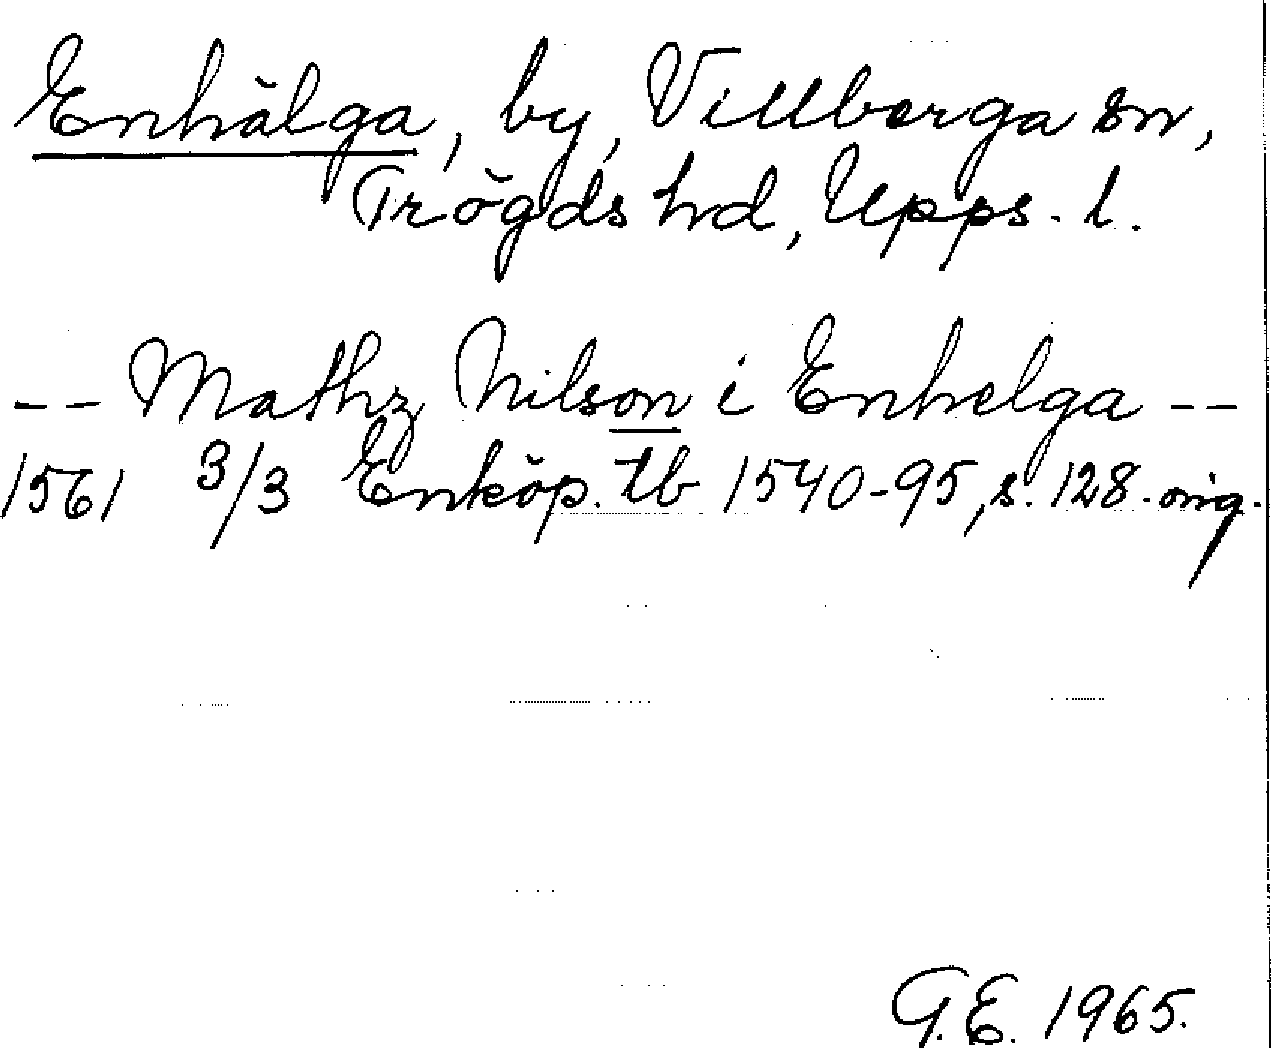 Enhälga, by, Villberga sn,
Trögds hd, Upps. l.
-- Mathz Nilson i Enhelga --
1561 3/3 Enköp. tb 1540-95, s. 128. orig.
G.E. 1965.